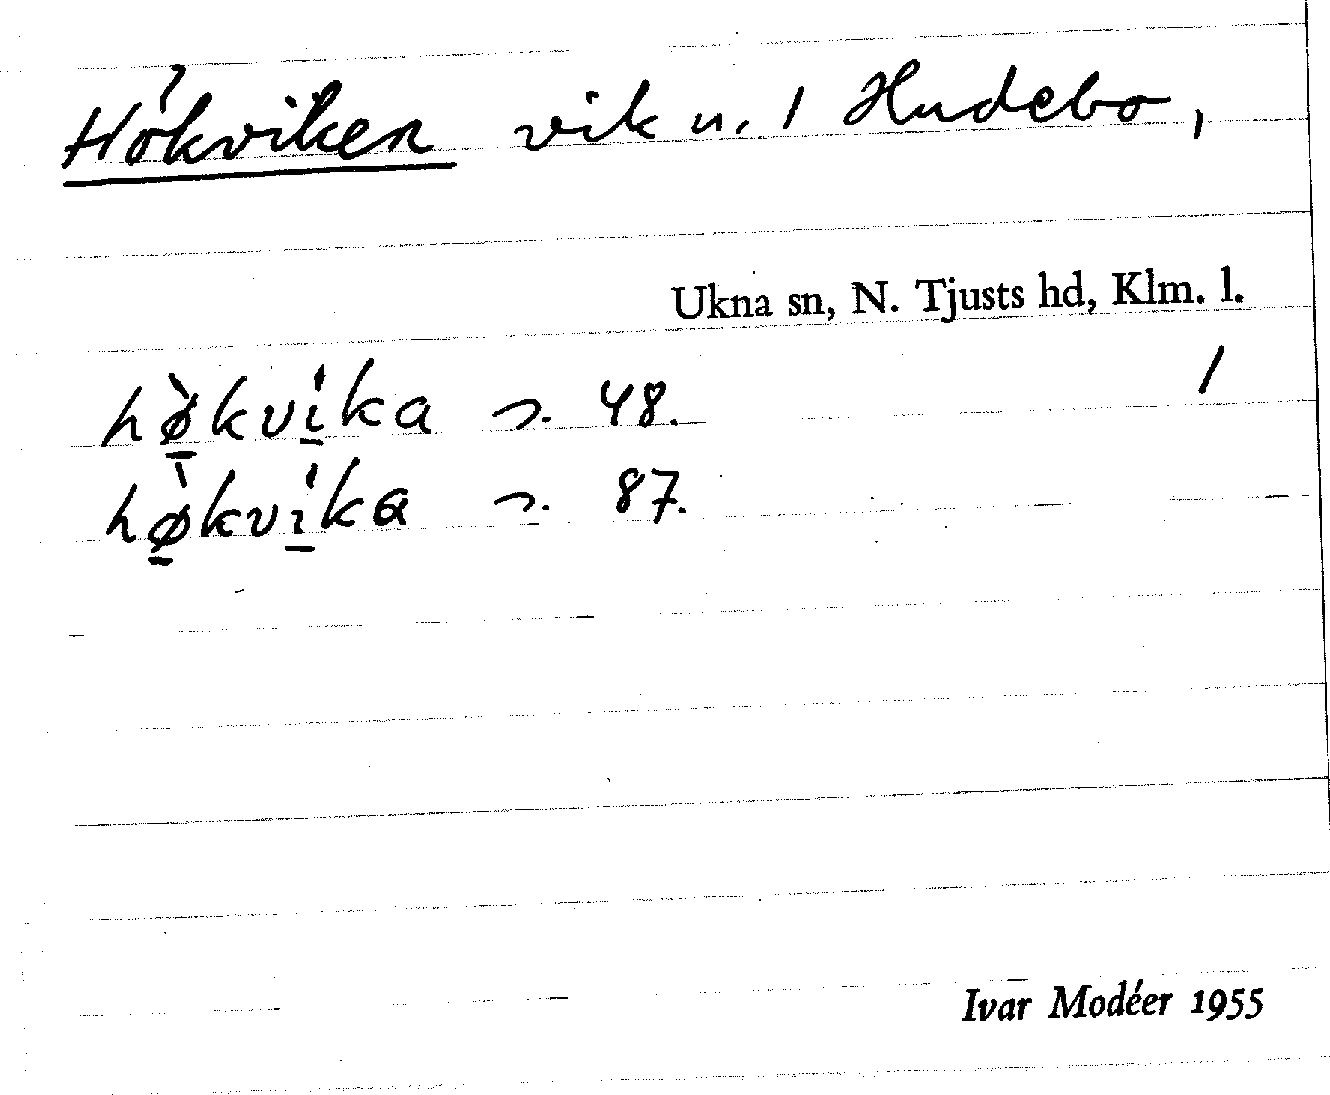 Hökviken vik u. 1 Hudebo,
Ukna sn, N. Tjusts hd, Klm. l.
hø̱̀kvi̱ka s. 48. /
hø̱̀kvi̱ka s. 87.
Ivar Modéer 1955